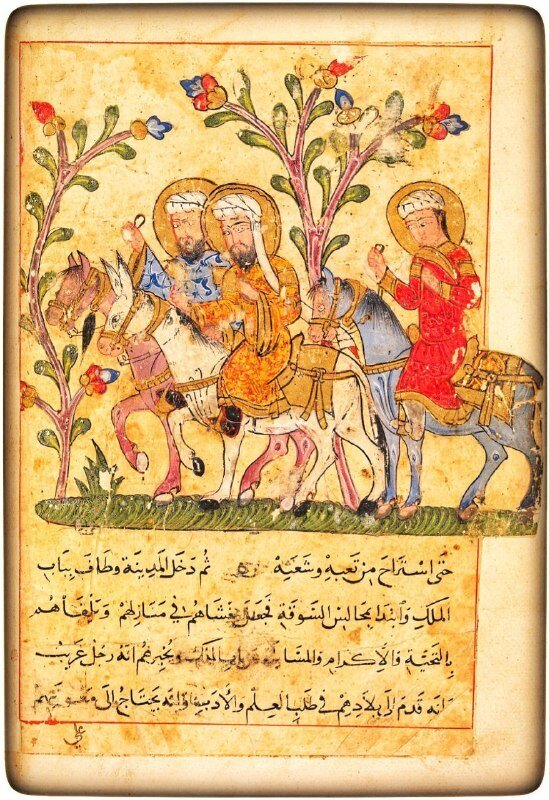 حَتى اسْتَراحَ مِن تَعبِهِ وشَعثِهِ ثُم دَخَل المَدينَة وَطافَ بِبابِ
المَلِكِ وَابتدَا بمَجالسِ السُّوقَةِ فَجعَل يغشاهُم في مَنازلهمْ وَيلقاهُمْ
بِالتَحيّةِ وَالاِكرامِ وَيُخبرهُم انَهُ رَجل غَريبْ
وانه قَدمَ اِلى بِلادِهِمْ في طَلبِ العِلمِ وَالأدَبِ وَانّهُ يَحتاجُ اِلى مَعونتِهِم
على